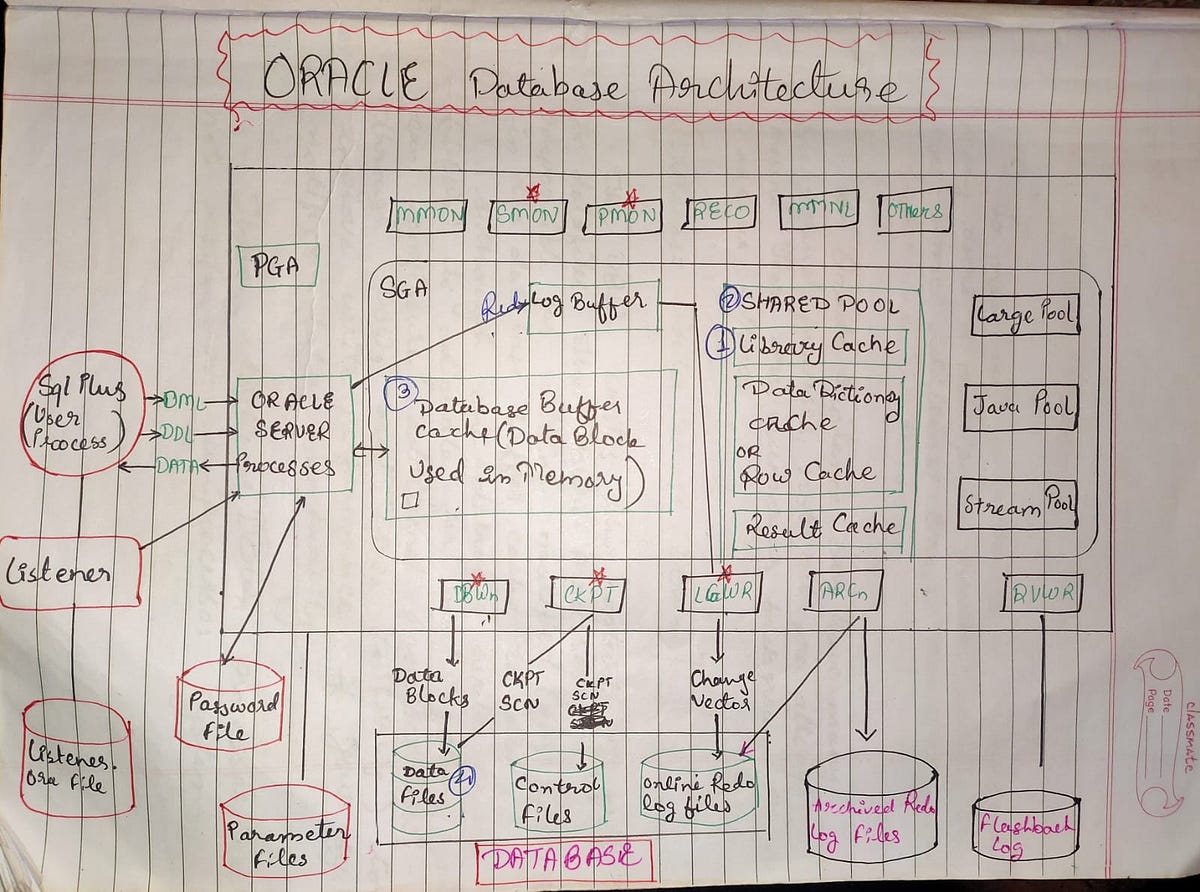 ORACLE Database Architecture
MMON
SMON
PMON
RECO
MMNL
Others
PGA
SGA
Redo
Log Buffer
② SHARED POOL
① Library Cache
Data Dictionary
cache
OR
Row Cache
Result Cache
Large Pool
Java Pool
Stream Pool
Sql Plus
(User
Process)
DML
DDL
DATA
ORACLE
SERVER
Processes
③
Database Buffer
cache (Data Block
used in Memory)
Listener
DBWn
CKPT
LGWR
ARCn
RVWR
Data
Blocks
CKPT
SCN
CKPT
SCN
Change
Vector
Password
file
Listener.
ora file
Parameter
files
Data
files
Control
files
Online Redo
log files
Archived Redo
Log Files
Flashback
Log
DATABASE
classmate
Date
Page